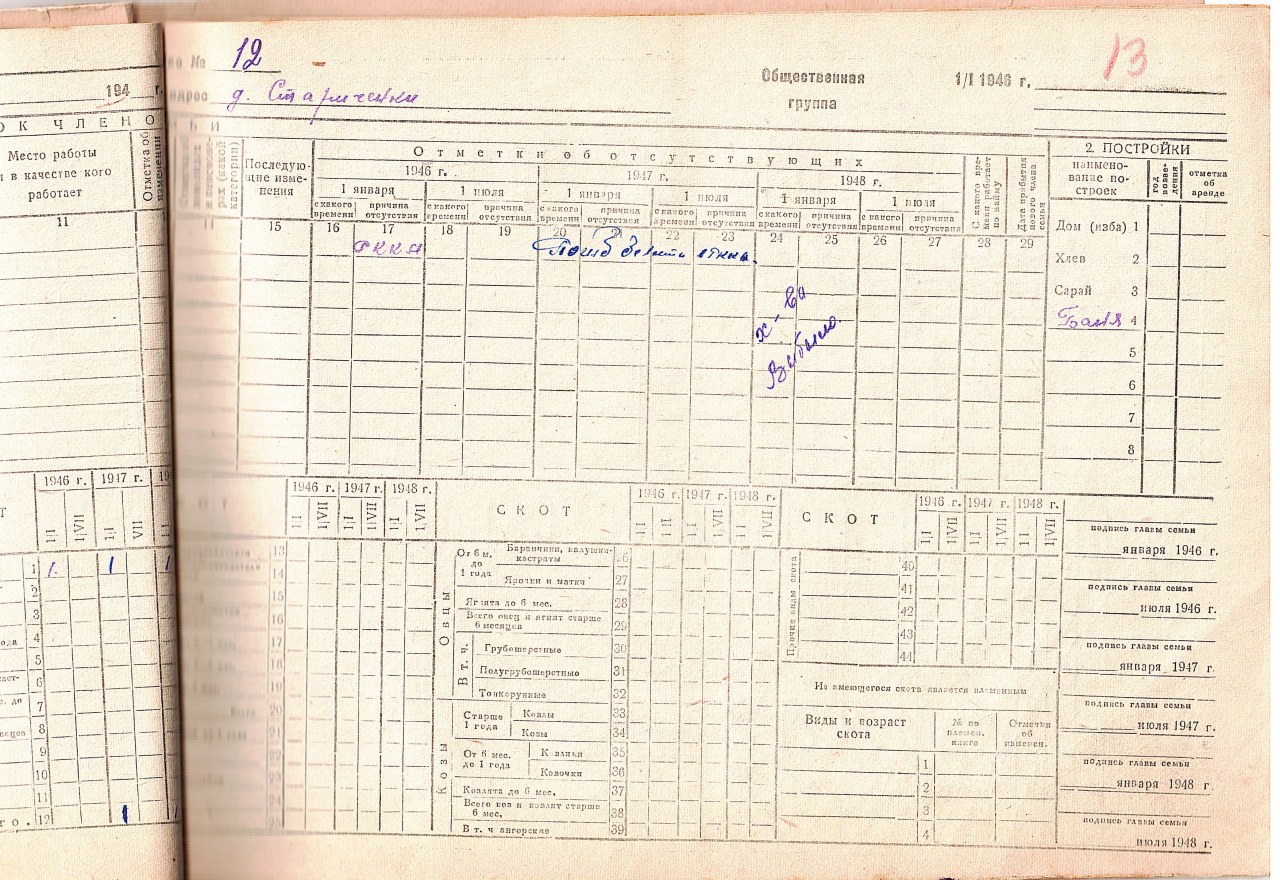 194 г.
ОК ЧЛЕНО
Место работы
и в качестве кого
работает
Отметка об
изменении
11
1946 г. 1947 г.
1/I 1/VII 1/I VII 1/I
1 1. 1 1
2
3
4
5
6
7
8
9
10
11
12 1
№ 12
13
адрес д. Старичёнки
Общественная
группа
1/I 1946 г.
Отметки об отсутствующих
Последую-
щие изме-
нения
1946 г. 1947 г. 1948 г.
1 января 1 июля 1 января 1 июля 1 января 1 июля
с какого времени причина отсутствия с какого времени причина отсутствия с какого времени причина отсутствия с какого времени причина отсутствия с какого времени причина отсутствия с какого времени причина отсутствия
С какого вре-
мени работает
по найму
Дата прибытия
нового члена
семьи
15 16 17 18 19 20 21 22 23 24 25 26 27 28 29
РККА
х-во
Выбыло.
2. ПОСТРОЙКИ
наимено-
вание по-
строек
год
возве-
дения
отметка
об
аренде
Дом (изба) 1
Хлев 2
Сарай 3
Баня 4
5
6
7
8
1946 г. 1947 г. 1948 г.
1/I 1/VII 1/I 1/VII 1/I 1/VII
13
14
15
16
17
18
19
20
21
22
23
24
25
СКОТ
1946 г. 1947 г. 1948 г.
1/I 1/VII 1/I 1/VII 1/I 1/VII
Овцы
От 6 м.
до
1 года
Баранчики, валушки-
кастраты 26
Ярочки и матки 27
Ягнята до 6 мес. 28
Всего овец и ягнят старше
6 месяцев 29
В т. ч.
Грубошерстные 30
Полугрубошерстные 31
Тонкорунные 32
Козы
Старше
1 года
Козлы 33
Козы 34
От 6 мес.
до 1 года
Козлики 35
Козочки 36
Козлята до 6 мес. 37
Всего коз и козлят старше
6 мес. 38
В т. ч ангорские 39
СКОТ
1946 г. 1947 г. 1948 г.
1/I 1/VII 1/I 1/VII 1/I 1/VII
Прочие виды скота
40
41
42
43
44
Из имеющегося скота является племенным
Виды и возраст
скота
№ по
племен.
книге
Отметки
об
изменен.
1
2
3
4
подпись главы семьи
января 1946 г.
подпись главы семьи
июля 1946 г.
подпись главы семьи
января 1947 г.
подпись главы семьи
июля 1947 г.
подпись главы семьи
января 1948 г.
подпись главы семьи
июля 1948 г.